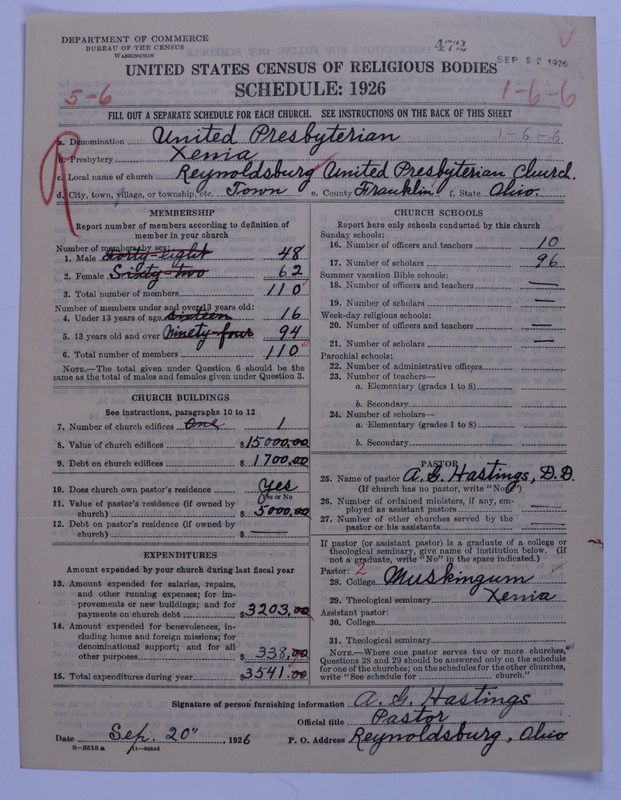 DEPARTMENT OF COMMERCE
BUREAU OF THE CENSUS
WASHINGTON
472
SEP 22 1926
UNITED STATES CENSUS OF RELIGIOUS BODIES
SCHEDULE: 1926
5-6
1-6-6
FILL OUT A SEPARATE SCHEDULE FOR EACH CHURCH. SEE INSTRUCTIONS ON THE BACK OF THIS SHEET
R
a. Denomination United Presbyterian 1-6-6
b. Presbytery Xenia
c. Local name of church Reynoldsburg United Presbyterian Church.
d. City, town, village, or township, etc. Town e. County Franklin f. State Ohio.
MEMBERSHIP
Report number of members according to definition of
member in your church
Number of members by sex:
1. Male Forty-eight 48
2. Female Sixty-two 62
3. Total number of members 110
Number of members under and over 13 years old:
4. Under 13 years of age sixteen 16
5. 13 years old and over Ninety-four 94
6. Total number of members 110
NOTE.—The total given under Question 6 should be the
same as the total of males and females given under Question 3.
CHURCH BUILDINGS
See instructions, paragraphs 10 to 12
7. Number of church edifices One 1
8. Value of church edifices $15000.00
9. Debt on church edifices $1700.00
10. Does church own pastor's residence Yes
Yes or No
11. Value of pastor's residence (if owned by
church) $5000.00
12. Debt on pastor's residence (if owned by
church) $ —
EXPENDITURES
Amount expended by your church during last fiscal year
13. Amount expended for salaries, repairs,
and other running expenses; for im-
provements or new buildings; and for
payments on church debt $3203.00
14. Amount expended for benevolences, in-
cluding home and foreign missions; for
denominational support; and for all
other purposes $338.00
15. Total expenditures during year $3541.00
CHURCH SCHOOLS
Report here only schools conducted by this church
Sunday schools:
16. Number of officers and teachers 10
17. Number of scholars 96
Summer vacation Bible schools:
18. Number of officers and teachers —
19. Number of scholars —
Week-day religious schools:
20. Number of officers and teachers —
21. Number of scholars —
Parochial schools:
22. Number of administrative officers
23. Number of teachers—
a. Elementary (grades 1 to 8)
b. Secondary
24. Number of scholars—
a. Elementary (grades 1 to 8)
b. Secondary
PASTOR
25. Name of pastor A. G. Hastings, D.D.
(If church has no pastor, write "None")
26. Number of ordained ministers, if any, em-
ployed as assistant pastors —
27. Number of other churches served by the
pastor or his assistants —
If pastor (or assistant pastor) is a graduate of a college or
theological seminary, give name of institution below. (If
not a graduate, write "No" in the space indicated.)
Pastor: 2
28. College Muskingum
29. Theological seminary Xenia
Assistant pastor:
30. College
31. Theological seminary
NOTE.—Where one pastor serves two or more churches,
Questions 28 and 29 should be answered only on the schedule
for one of the churches; on the schedules for the other churches,
write "See schedule for church."
Signature of person furnishing information A. G. Hastings
Official title Pastor
Date Sep. 20", 1926 P. O. Address Reynoldsburg, Ohio
8—5518 a